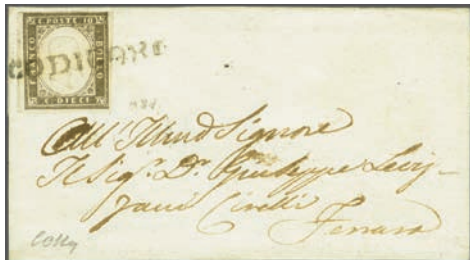 C. POSTE 10
FRANCO
BOLLO
C. DIECI
CODIGORO
All' Illmo Signore
Il Sigr. Dr. Giuseppe Levi
Ferrara